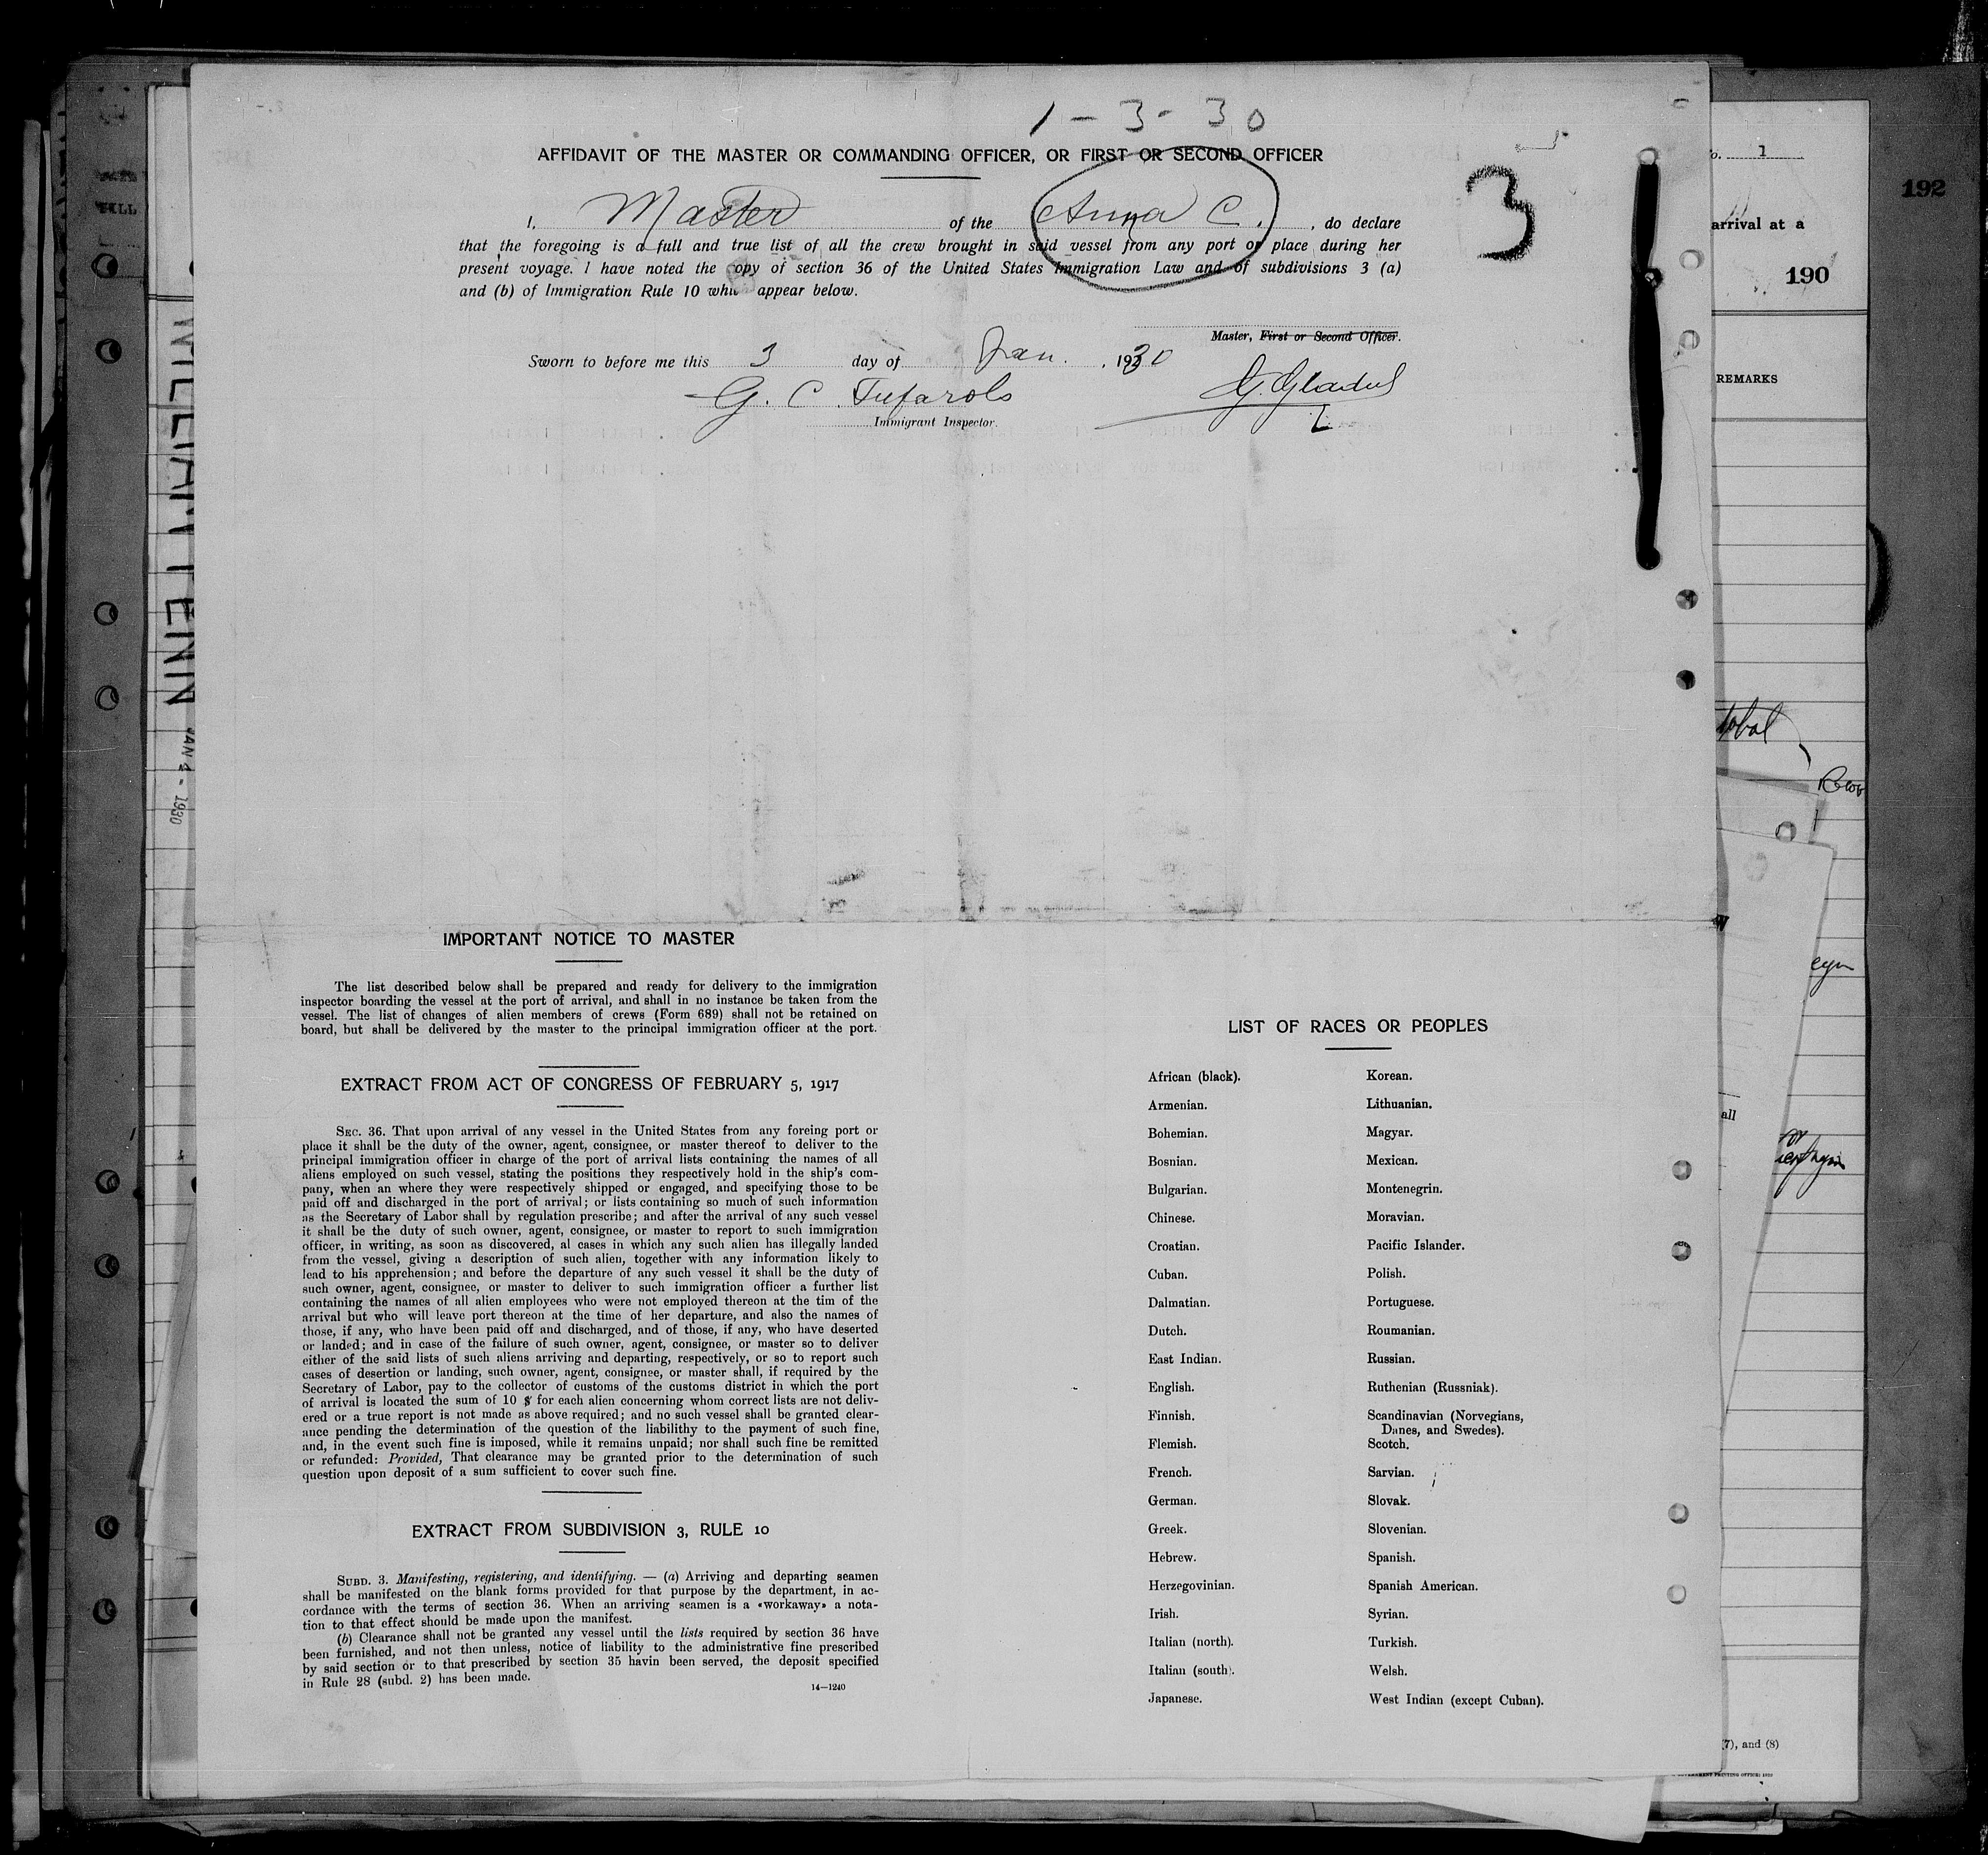 1 - 3 - 30
AFFIDAVIT OF THE MASTER OR COMMANDING OFFICER, OR FIRST OR SECOND OFFICER
3
I, Master of the Anna C. , do declare
that the foregoing is a full and true list of all the crew brought in said vessel from any port or place during her
present voyage. I have noted the copy of section 36 of the United States Immigration Law and of subdivisions 3 (a)
and (b) of Immigration Rule 10 appear below.
Master, First or Second Officer.
Sworn to before me this 3 day of Jan. , 1930
G. C.
Immigrant Inspector.
IMPORTANT NOTICE TO MASTER
The list described below shall be prepared and ready for delivery to the immigration
inspector boarding the vessel at the port of arrival, and shall in no instance be taken from the
vessel. The list of changes of alien members of crews (Form 689) shall not be retained on
board, but shall be delivered by the master to the principal immigration officer at the port.
EXTRACT FROM ACT OF CONGRESS OF FEBRUARY 5, 1917
SEC. 36. That upon arrival of any vessel in the United States from any foreing port or
place it shall be the duty of the owner, agent, consignee, or master thereof to deliver to the
principal immigration officer in charge of the port of arrival lists containing the names of all
aliens employed on such vessel, stating the positions they respectively hold in the ship's com-
pany, when an where they were respectively shipped or engaged, and specifying those to be
paid off and discharged in the port of arrival; or lists containing so much of such information
as the Secretary of Labor shall by regulation prescribe; and after the arrival of any such vessel
it shall be the duty of such owner, agent, consignee, or master to report to such immigration
officer, in writing, as soon as discovered, al cases in which any such alien has illegally landed
from the vessel, giving a description of such alien, together with any information likely to
lead to his apprehension; and before the departure of any such vessel it shall be the duty of
such owner, agent, consignee, or master to deliver to such immigration officer a further list
containing the names of all alien employees who were not employed thereon at the tim of the
arrival but who will leave port thereon at the time of her departure, and also the names of
those, if any, who have been paid off and discharged, and of those, if any, who have deserted
or landed; and in case of the failure of such owner, agent, consignee, or master so to deliver
either of the said lists of such aliens arriving and departing, respectively, or so to report such
cases of desertion or landing, such owner, agent, consignee, or master shall, if required by the
Secretary of Labor, pay to the collector of customs of the customs district in which the port
of arrival is located the sum of 10 $ for each alien concerning whom correct lists are not deliv-
ered or a true report is not made as above required; and no such vessel shall be granted clear-
ance pending the determination of the question of the liabilithy to the payment of such fine,
and, in the event such fine is imposed, while it remains unpaid; nor shall such fine be remitted
or refunded: Provided, That clearance may be granted prior to the determination of such
question upon deposit of a sum sufficient to cover such fine.
EXTRACT FROM SUBDIVISION 3, RULE 10
SUBD. 3. Manifesting, registering, and identifying. — (a) Arriving and departing seamen
shall be manifested on the blank forms provided for that purpose by the department, in ac-
cordance with the terms of section 36. When an arriving seamen is a «workaway» a nota-
tion to that effect should be made upon the manifest.
(b) Clearance shall not be granted any vessel until the lists required by section 36 have
been furnished, and not then unless, notice of liability to the administrative fine prescribed
by said section or to that prescribed by section 35 havin been served, the deposit specified
in Rule 28 (subd. 2) has been made.
14—1240
LIST OF RACES OR PEOPLES
African (black).
Armenian.
Bohemian.
Bosnian.
Bulgarian.
Chinese.
Croatian.
Cuban.
Dalmatian.
Dutch.
East Indian.
English.
Finnish.
Flemish.
French.
German.
Greek.
Hebrew.
Herzegovinian.
Irish.
Italian (north).
Italian (south).
Japanese.
Korean.
Lithuanian.
Magyar.
Mexican.
Montenegrin.
Moravian.
Pacific Islander.
Polish.
Portuguese.
Roumanian.
Russian.
Ruthenian (Russniak).
Scandinavian (Norvegians,
Danes, and Swedes).
Scotch.
Sarvian.
Slovak.
Slovenian.
Spanish.
Spanish American.
Syrian.
Turkish.
Welsh.
West Indian (except Cuban).
1
192
arrival at a
190
REMARKS
all
(7), and (8)
WILLIAM PENN
JAN 2 - 1930